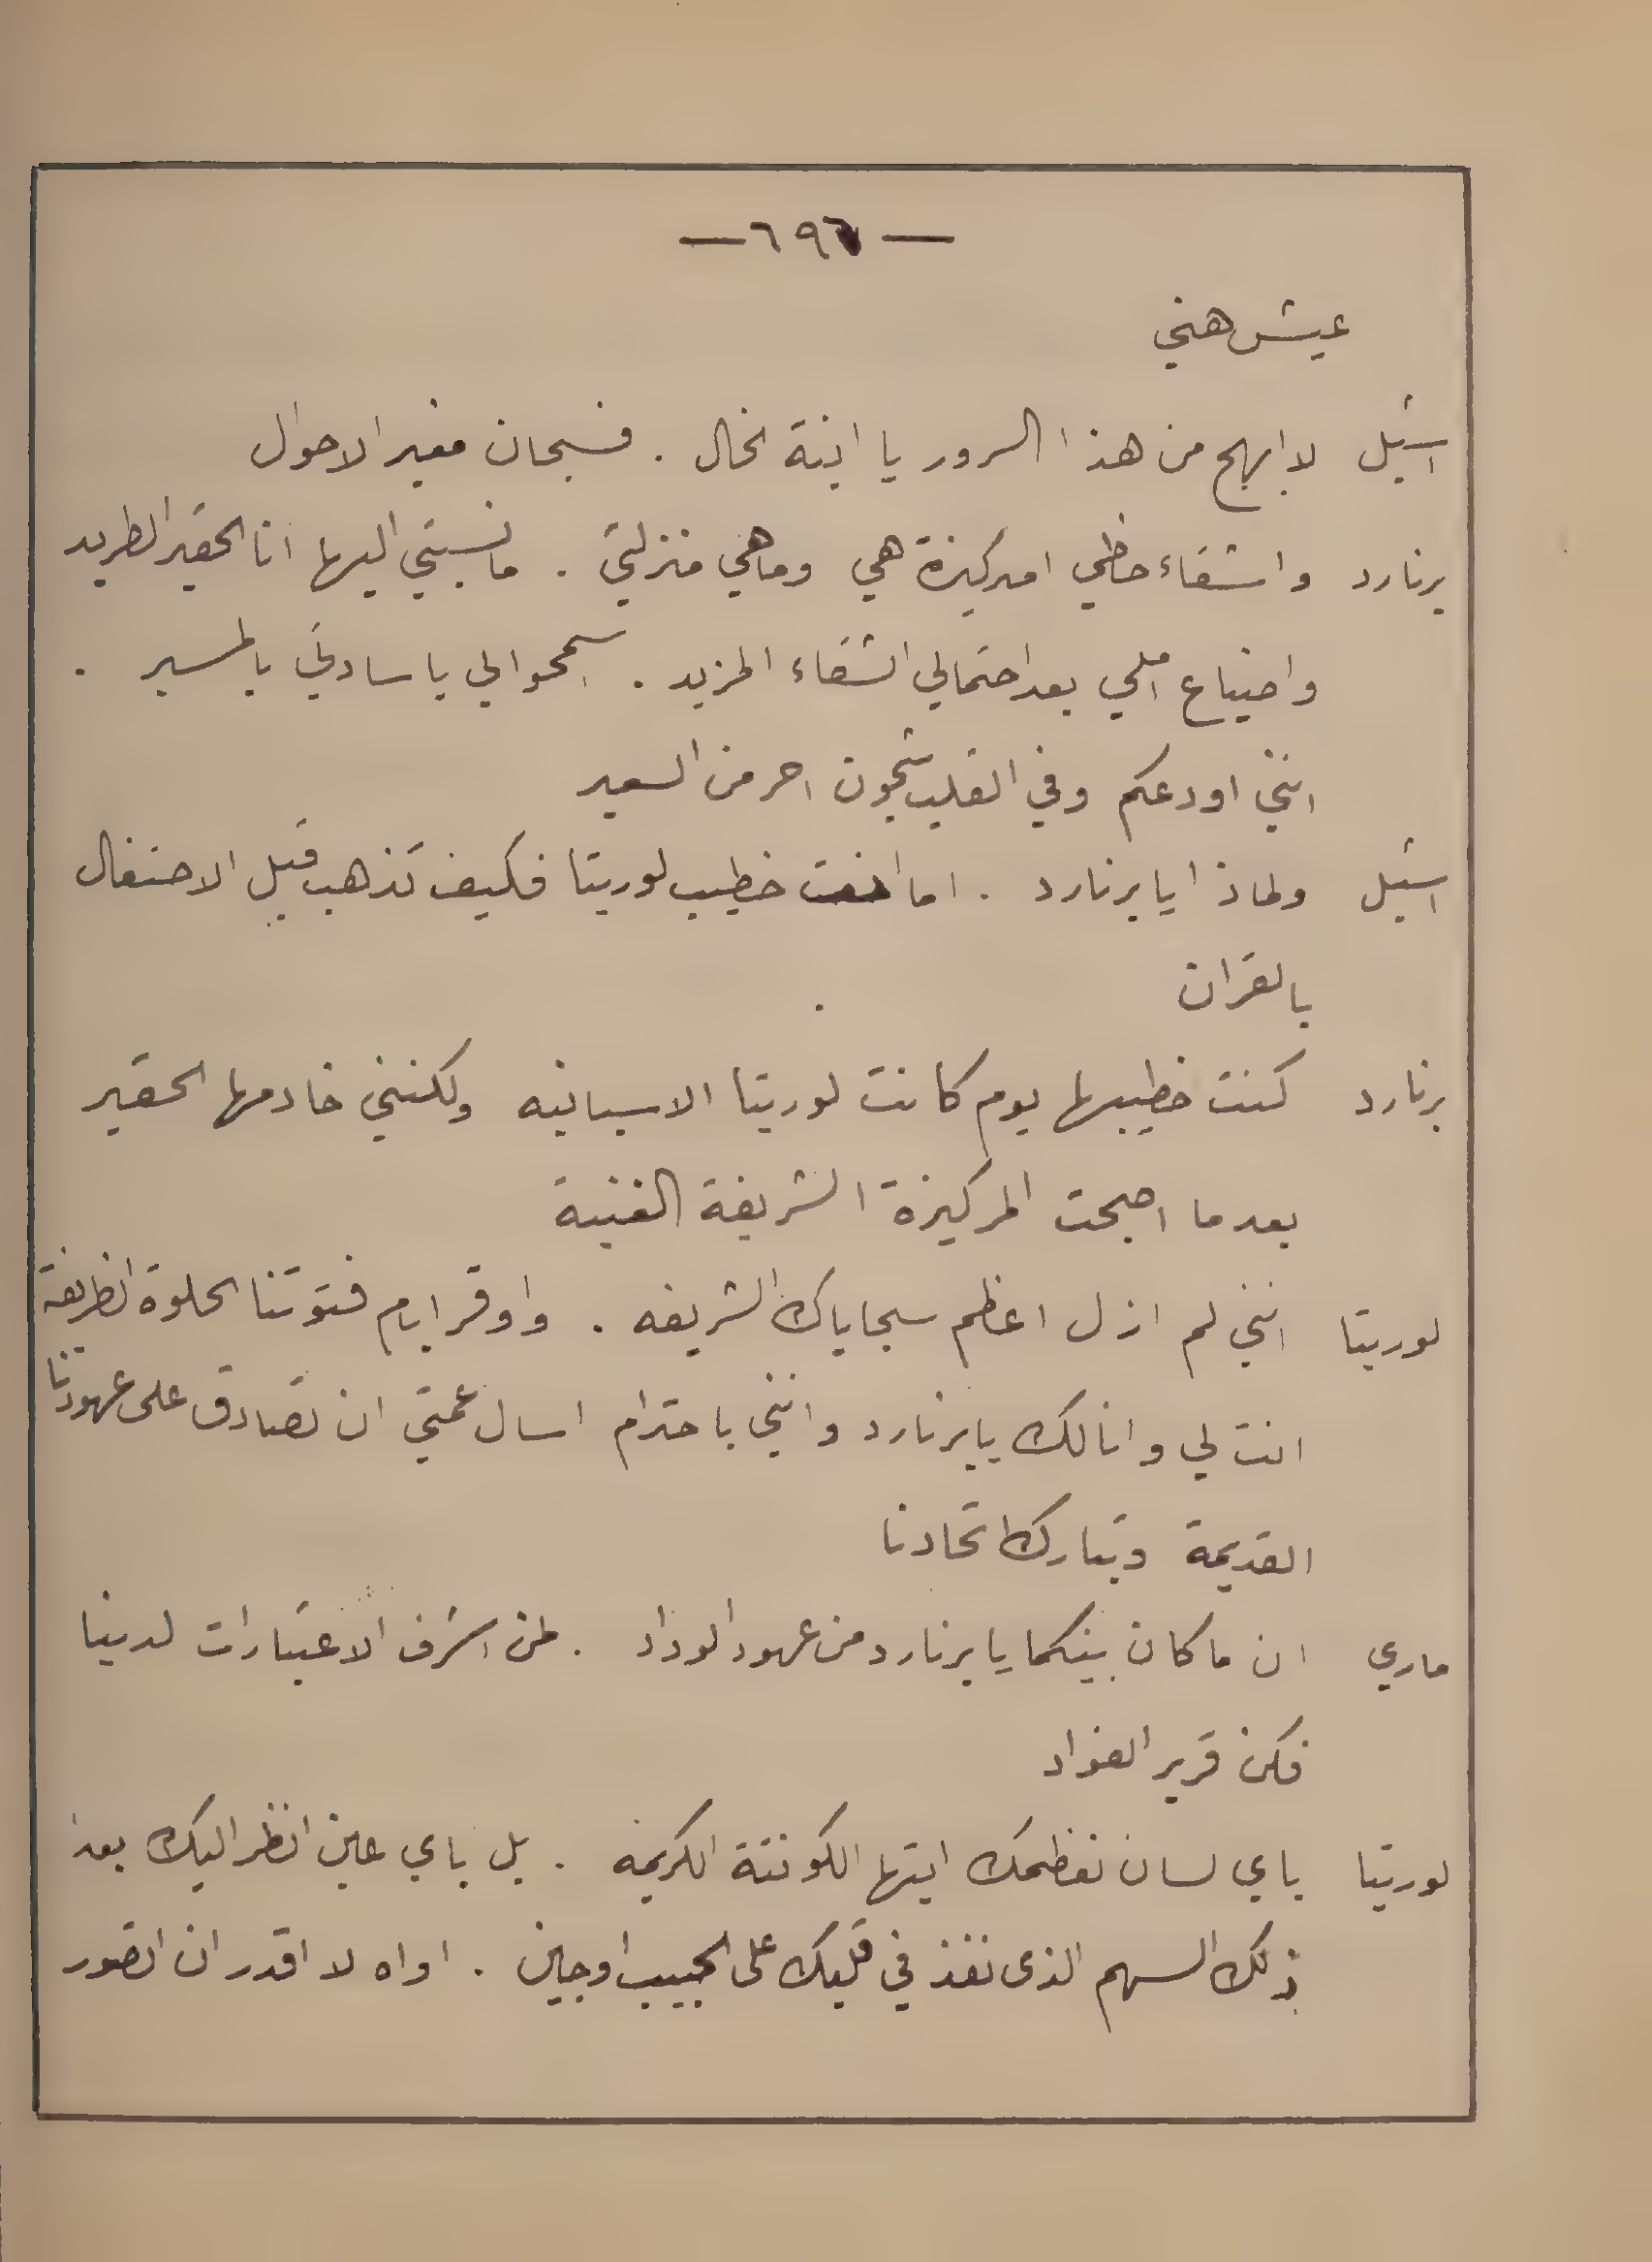 — ٦٩٦ —
عيش هني
اشيل لا ابهج من هذا السرور يا ابنة الخال . فسبحان مغير الاحوال
برنارد واشقاء حظي امركيزة هي وما هي منزلتي . ما نسبتي اليها انا الحقير الطريد
واضياع املي بعد احتمالي الشقاء المزيد . اسمحوا لي يا سادتي بالمسير .
انني اودعكم وفي القلب شجون احر من السعير
اشيل ولماذا يا برنارد . اما انت خطيب لوريتا فكيف تذهب قبل الاحتفال
بالقران
برنارد كنت خطيبها يوم كانت لوريتا الاسبانيه ولكنني خادمها الحقير
بعد ما اصبحت المركيزة الشريفة الغنية
لوريتا انني لم ازل اعظم سجاياك الشريفه . واوقر ايام فتوتنا الحلوة الظريفة
انت لي وانا لك يا برنارد وانني باحترام اسال عمتي ان تصادق على عهودنا
القديمة وتبارك اتحادنا
ماري ان ما كان بينكما يا برنارد من عهود الوداد . لمن اشرف الاعتبارات لدينا
فكن قرير الفواد
لوريتا باي لسان نعظمك ايتها الكونتة الكريمه . بل باي عين انظر اليك بعد
ذلك السهم الذى نفذ في قلبك على الحبيب اوجين . اواه لا اقدر ان اتصور